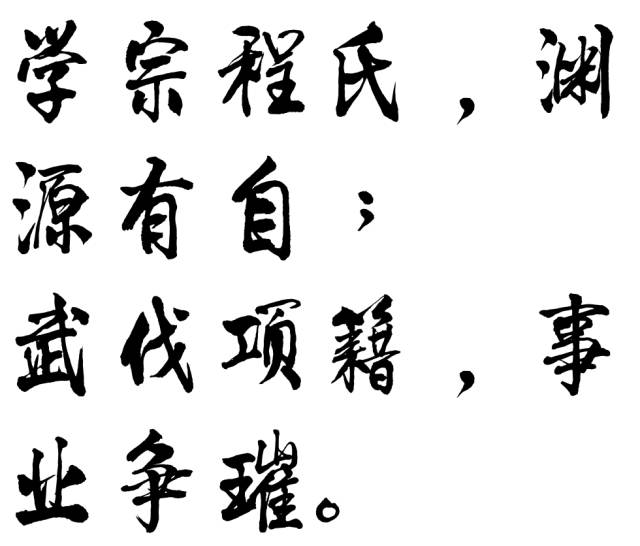 学宗程氏，渊
源有自；
武伐项籍，事
业争璀。